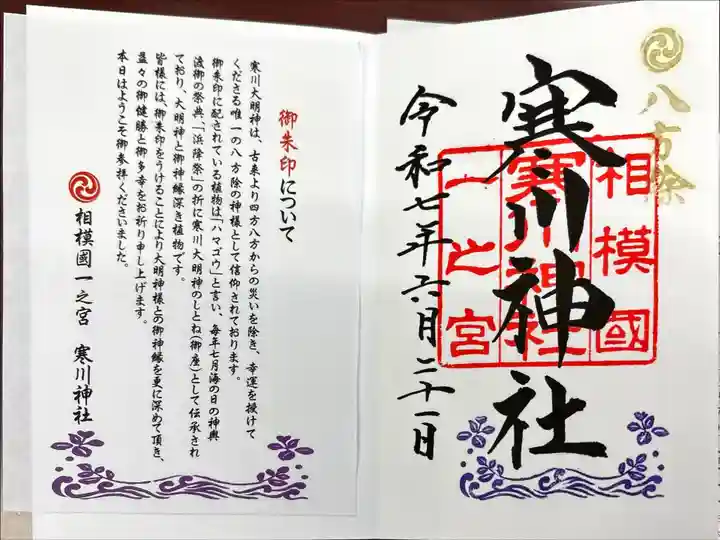 八方除
相模國
寒川神社
一之宮
寒川神社
令和七年六月二十一日
御朱印について
寒川大明神は、古来より四方八方からの災いを除き、幸運を授けて
くださる唯一の八方除の神様として信仰されております。
御朱印に配されている植物は「ハマゴウ」と言い、毎年七月海の日の神輿
渡御の祭典、「浜降祭」の折に寒川大明神のしとね(御座)として伝承され
ており、大明神と御神縁深き植物です。
皆様には、御朱印をうけることにより大明神様との御神縁を更に深めて頂き、
益々の御健勝と御多幸をお祈り申し上げます。
本日はようこそ御参拝くださいました。
相模國一之宮 寒川神社